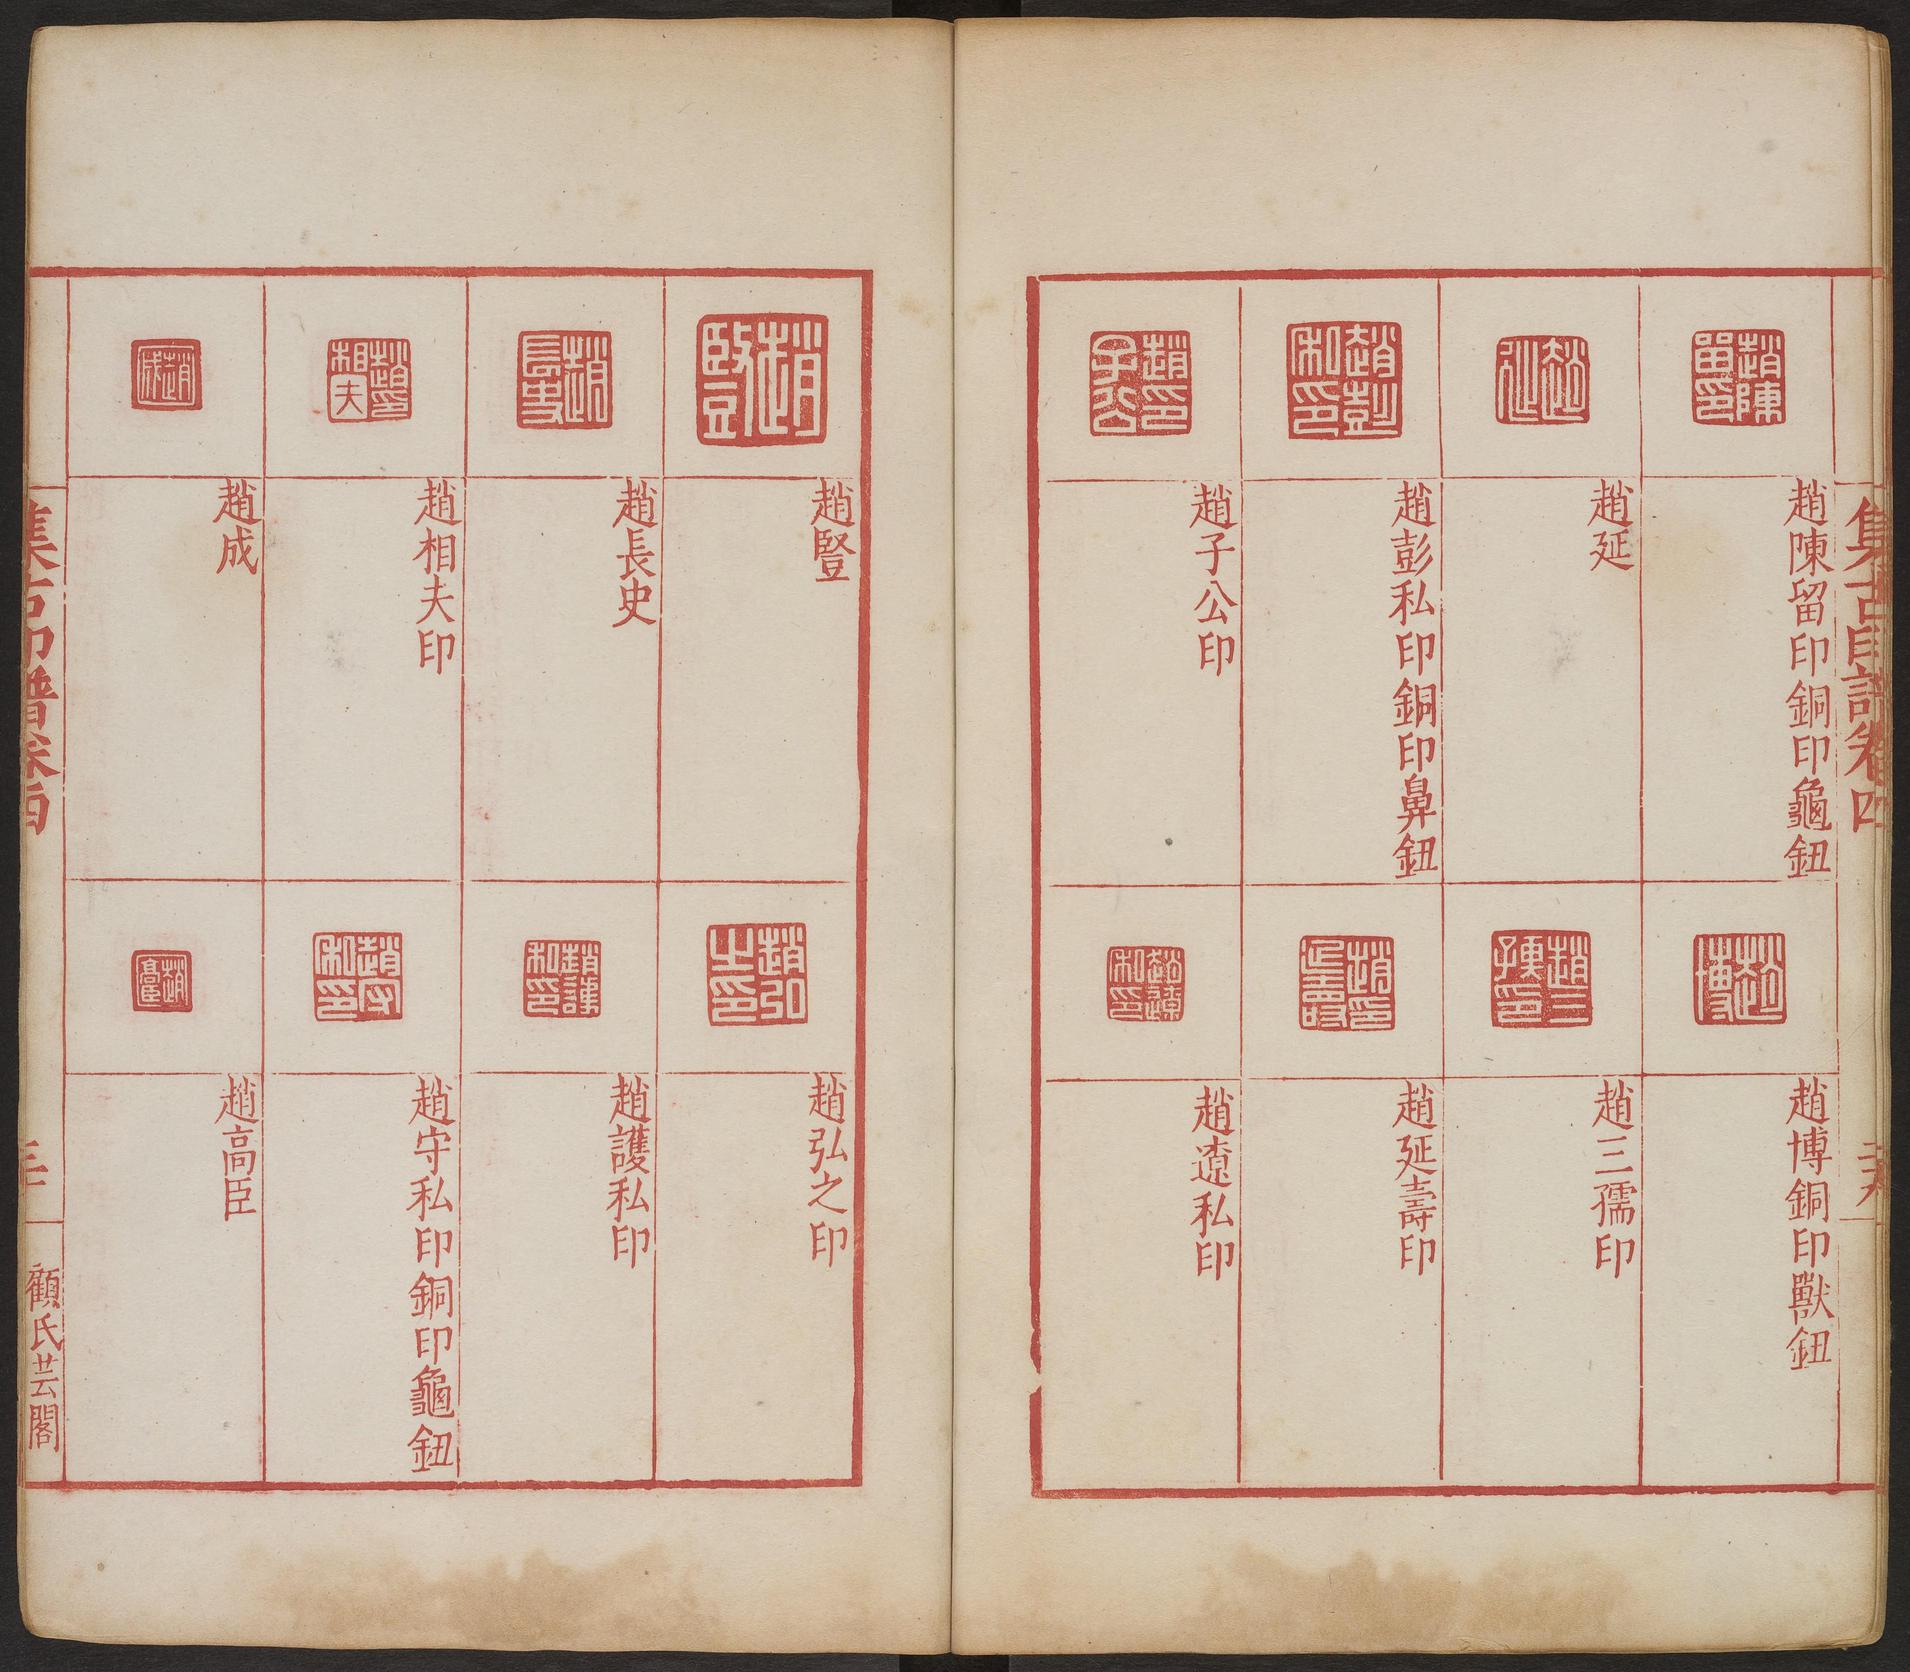 集古印譜卷四
趙陳留印銅印龜鈕
趙延
趙彭私印銅印鼻鈕
趙子公印
趙博銅印獸鈕
趙三孺印
趙延壽印
趙遼私印
趙豎
趙長史
趙相夫印
趙成
趙弘之印
趙護私印
趙守私印銅印龜鈕
趙高臣
集古印譜卷四
顧氏芸閣